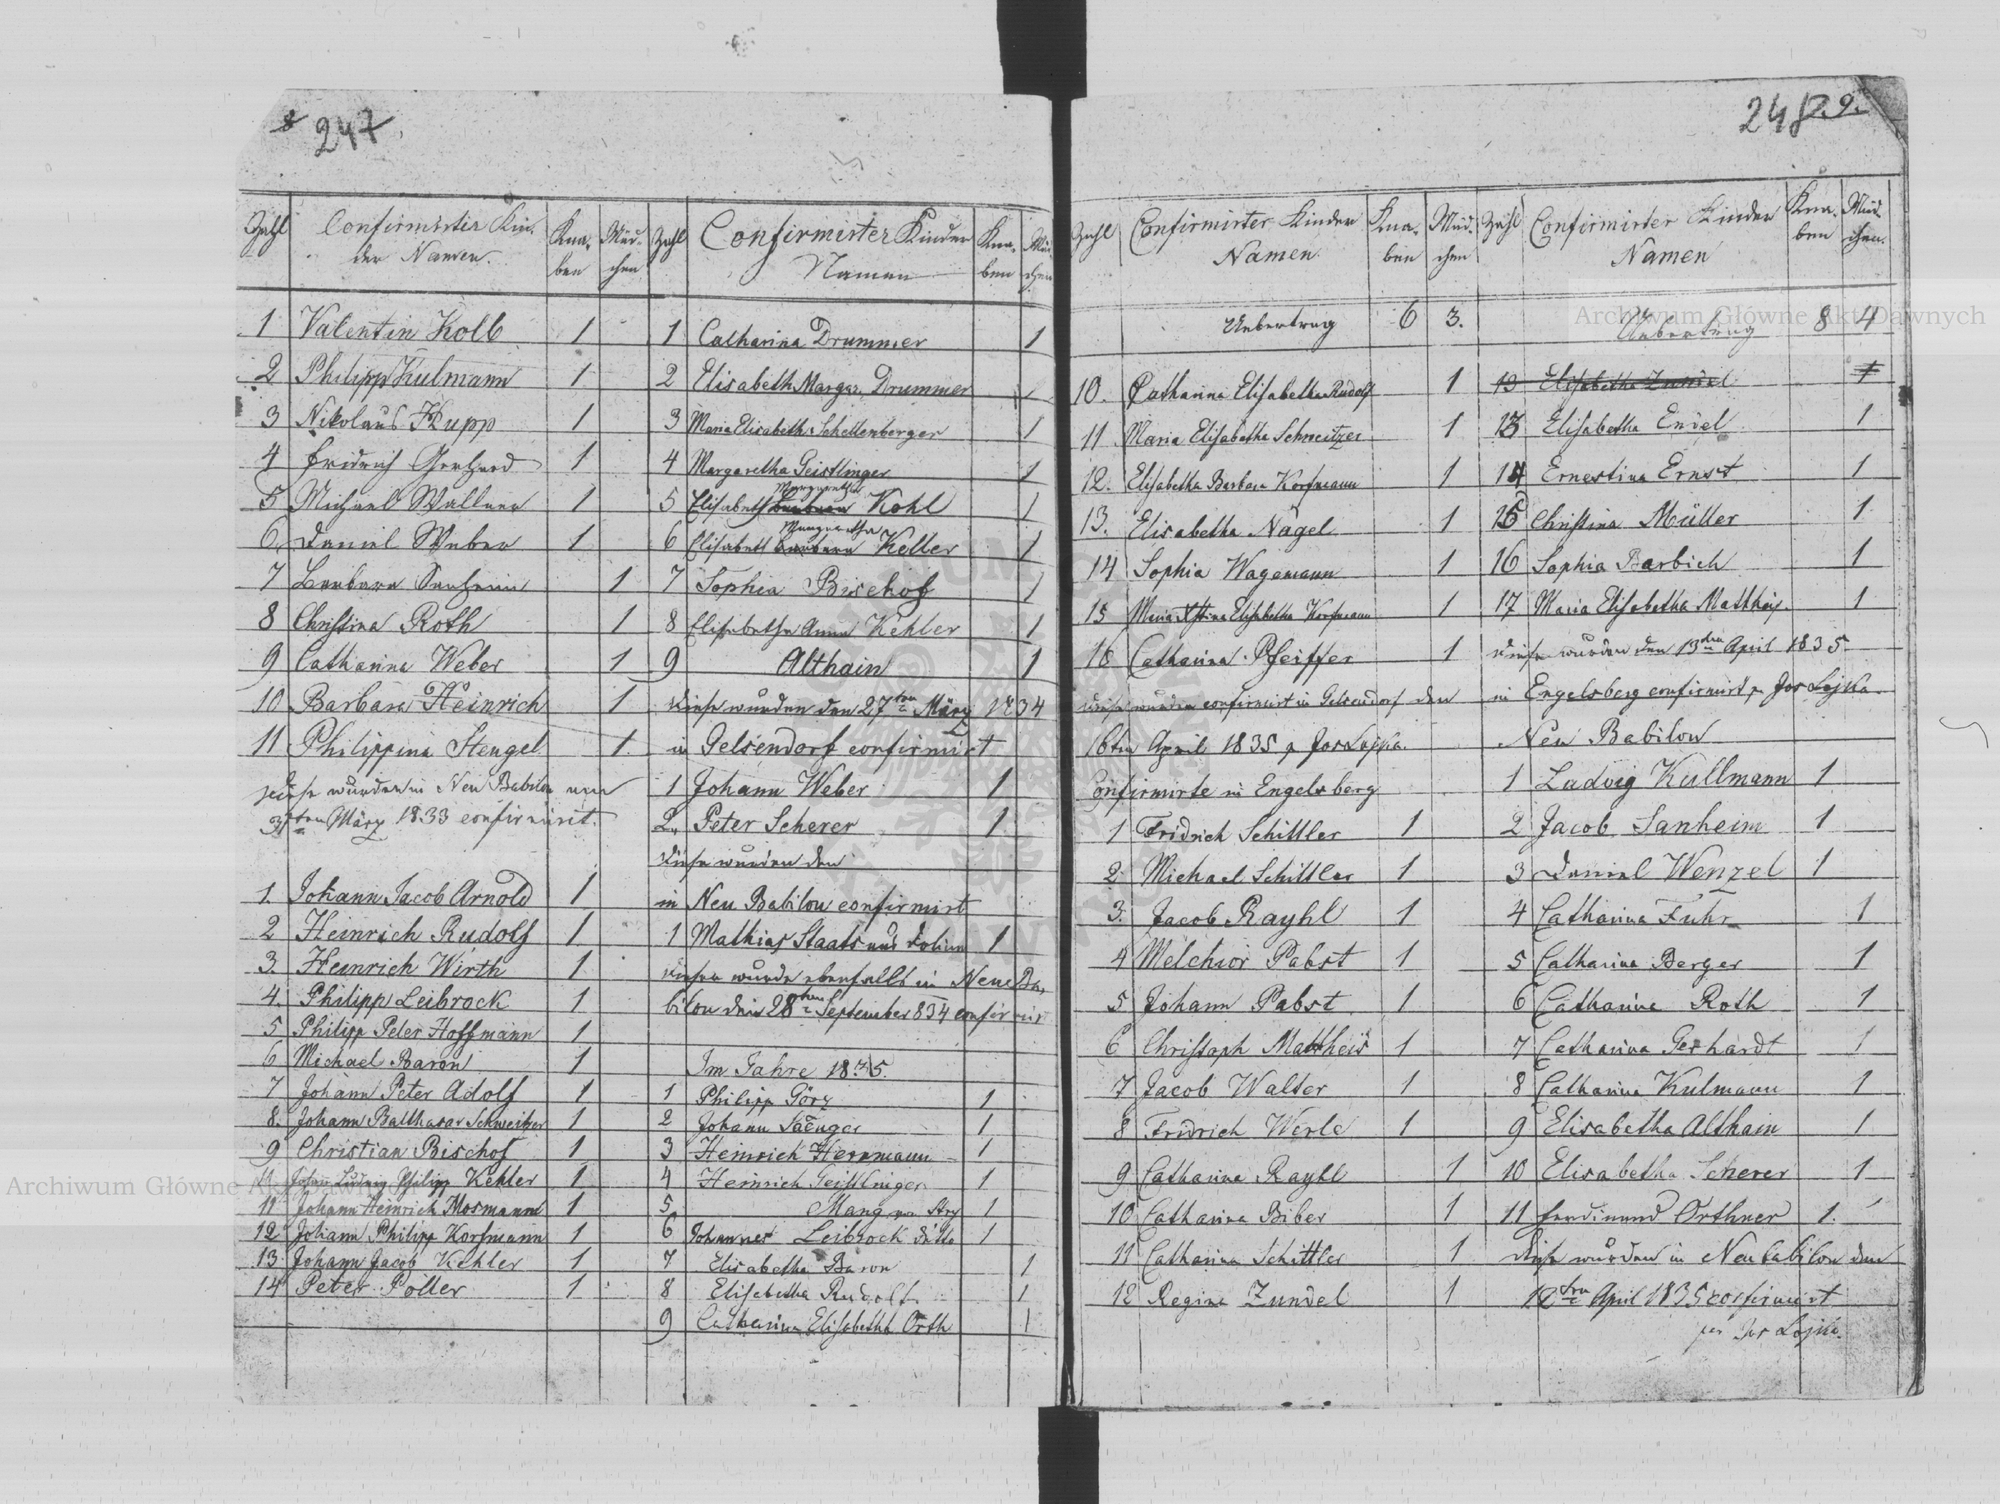 8 247.
Zahl Confirmirter Kin-
der Namen. Kna-
ben Mäd-
chen
1 Valentin Kolb 1
2 Philipp Kulmann 1
3 Nikolaus Kupp 1
4 Fridrich Gerhard 1
5 Michael Wallner 1
6 Daniel Weber 1
7 Barbara Sanheim 1
8 Christina Roth 1
9 Catharina Weber 1
10 Barbara Heinrich 1
11 Philippina Stengel 1.
diese wurden in Neu Babilon am
31ten März 1833 confirmirt.
1. Johann Jacob Arnold 1
2 Heinrich Rudolf 1
3. Heinrich Wirth 1
4. Philipp Leibrock 1
5 Philipp Peter Hoffmann 1
6 Michael Baron 1
7 Johann Peter Adolf 1
8. Johann Balthasar Schweitzer 1
9 Christian Bischof 1
Johan Ludwig Philipp Kehler 1
11 Johann Heinrich Mosmann 1
12 Johann Philipp Korfmann 1
13 Johann Jacob Kehler 1
14 Peter Poller 1
Zahl Confirmirter Kinder
Namen Kna-
ben Mäd-
chen
1 Catharina Drummer 1
2 Elisabeth Margar. Drummer 1
3 Maria Elisabeth Schellenberger 1
4 Margaretha Geistlinger 1
Margaretha
5 Elisabeth Barbara Kohl 1
Margaretha
6 Elisabeth Barbara Keller 1
7 Sophia Bischof 1
8 Elisabetha Anna Kehler 1
9 Althain 1
diese wurden den 27ten März 1834
in Gelsendorf confirmirt
1 Johann Weber 1
2. Peter Scherer 1
diese wurden den
in Neu Babilon confirmirt
1 Mathias Staats aus Dolina 1
dieser wurde ebenfalls in Neu Ba-
bilon den 28ten September 834 confirmirt
Im Jahre 1835.
1 Philipp Görz 1
2 Johann Saenger 1
3 Heinrich Herrmann 1
4 Heinrich Geistlinger 1
5 Mang von Stry 1
6 Johannes Leibrock ditto 1
7 Elisabetha Baron 1
8 Elisabetha Rudolf 1
9 Catharina Elisabetha Orth 1
248 P. 9.
Zahl Confirmirter Kinder
Namen Kna-
ben Mäd-
chen
Uebertrag 6 3.
10. Catharina Elisabetha Rudolf 1
11 Maria Elisabetha Schweitzer 1
12. Elisabetha Barbara Korfmann 1
13. Elisabetha Nagel 1
14 Sophia Wagemann 1
15 Maria Elisabetha Korfmann 1
16 Catharina Pfeiffer 1
diese wurden confirmirt in Gelsendorf den
16ten April 1835 p Jos Lojka.
Confirmirte in Engelsberg
1 Fridrich Schittler 1
2 Michael Schittler 1
3. Jacob Rayhl 1
4 Melchior Pabst 1
5 Johann Pabst 1
6 Christoph Mattheis 1
7 Jacob Walter 1
8 Fridrich Werle 1
9 Catharina Rayhl 1
10 Catharina Biber 1
11 Catharina Schittler 1
12 Regina Zundel 1
Zahl Confirmirter Kinder
Namen Kna-
ben Mäd-
chen.
Uebertrag 8 4
13 Elisabetha Zundel 1
13 Elisabetha Endel 1
14 Ernestina Ernst 1
15 Christina Müller 1
16 Sophia Barbich 1
17 Maria Elisabetha Matthäy. 1
diese wurden den 13ten April 1835
in Engelsberg confirmirt p Jos Lojka
Neu Babilon
1 Ludvig Kullmann 1
2 Jacob Sanheim 1
3 Daniel Wenzel 1
4 Catharina Fuhr 1
5 Catharina Berger 1
6 Catharina Roth 1
7 Catharina Gerhardt 1
8 Catharina Kulmann 1
9 Elisabetha Althain 1
10 Elisabetha Scherer 1
11 Ferdinand Orthner 1.
diese wurden in Neubabilon den
12ten April 1835 confirmirt
per Jos Lojka.
Archiwum Główne Akt Dawnych
Archiwum Główne Akt Dawnych